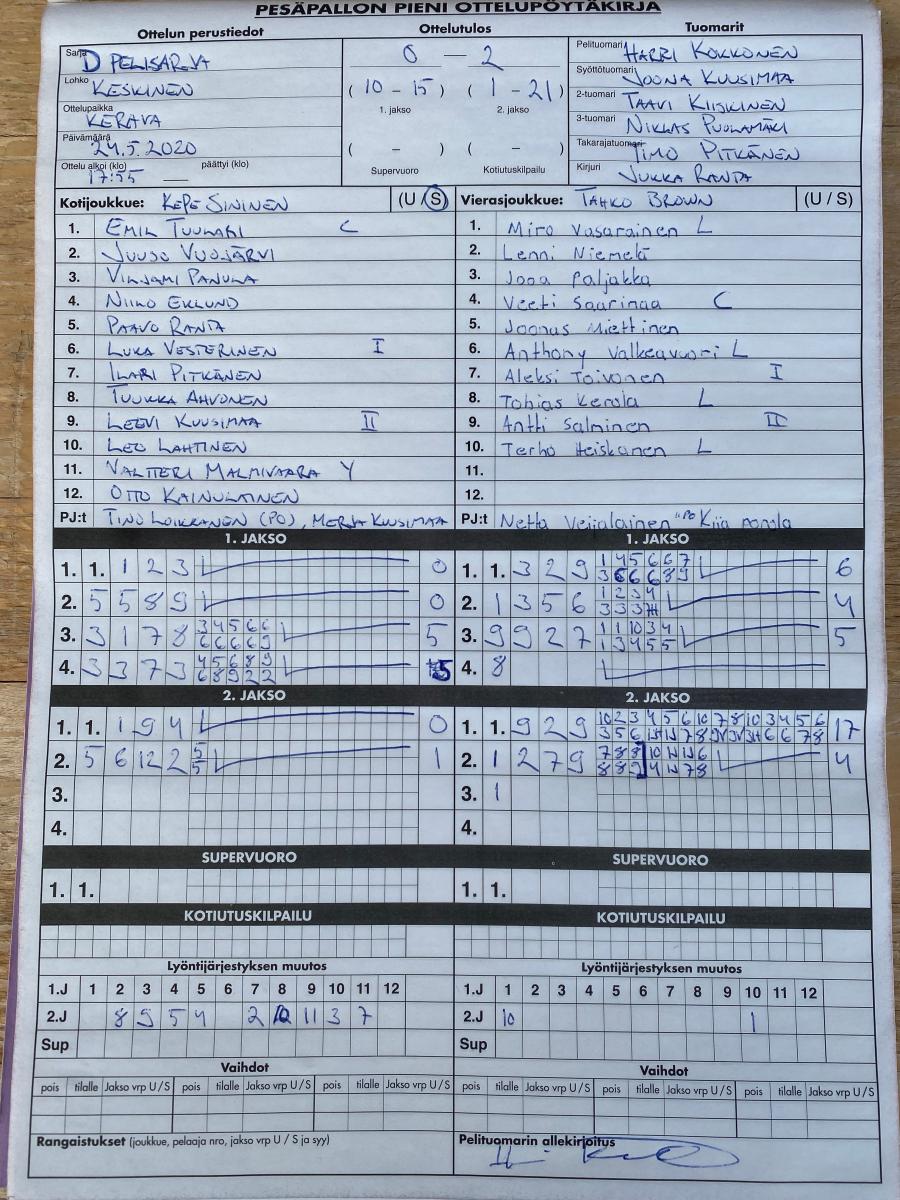 PESÄPALLON PIENI OTTELUPÖYTÄKIRJA
Ottelun perustiedot Ottelutulos Tuomarit
Sarja D PELISARJA 0 – 2 Pelituomari HARRI KOKKONEN
Lohko KESKINEN ( 10 – 15 ) ( 1 – 21 ) Syöttötuomari JOONA KUUSIMAA
1. jakso 2. jakso 2-tuomari TAAVI KIISKINEN
Ottelupaikka KERAVA 3-tuomari NIKLAS PUOLAMÄKI
Päivämäärä 24.5.2020 ( – ) ( – ) Takarajatuomari TIMO PITKÄNEN
Ottelu alkoi (klo) 17:55 päättyi (klo) — Supervuoro Kotiutuskilpailu Kirjuri JUKKA RANTA
Kotijoukkue: KEPE SININEN (U / S) Vierasjoukkue: TAHKO BROWN (U / S)
1. EMIL TUULARI C 1. Miro Vasarainen L
2. JUUSO VUOJÄRVI 2. Lenni Niemelä
3. VILJAMI PANULA 3. Jooa Paljakka
4. NIILO EKLUND 4. Veeti Saarinaa C
5. PAAVO RANTA 5. Joonas Miettinen
6. LUKA VESTERINEN I 6. Anthony Valkeavuori L
7. ILARI PITKÄNEN 7. Aleksi Toivonen I
8. TUUKKA AHVONEN 8. Tobias Kerola L
9. LEEVI KUUSIMAA II 9. Antti Salminen II
10. LEO LAHTINEN 10. Terho Heiskanen L
11. VALTTERI MALMIVAARA Y 11.
12. OTTO KAINULAINEN 12.
PJ:t TINO LOIKKANEN (PO), MERJA KUUSIMAA PJ:t Netta Veijalainen "PO Kija
1. JAKSO 1. JAKSO
1. 1. 1 2 3 0 1. 1. 3 2 9 1 4 5 6 6 7 6
3 6 6 6 8 9
2. 5 5 8 9 0 2. 1 3 5 6 1 2 3 4 4
3 3 3
3. 3 1 7 8 3 4 5 6 6 5 3. 9 9 2 7 1 1 10 3 4 5
6 6 6 6 9 1 3 4 5 5
4. 3 3 7 3 4 5 6 8 9 5 4. 8
6 8 9 2 2
2. JAKSO 2. JAKSO
1. 1. 1 9 4 0 1. 1. 9 2 9 10 2 3 4 5 6 10 7 8 10 3 4 5 6 17
3 5 6 7 8 6 6 7 8
2. 5 6 12 2 5 1 2. 1 2 7 9 7 8 8 10 6 4
5 8 8 9 4 7 8
3. 3. 1
4. 4.
SUPERVUORO SUPERVUORO
1. 1. 1. 1.
KOTIUTUSKILPAILU KOTIUTUSKILPAILU
Lyöntijärjestyksen muutos Lyöntijärjestyksen muutos
1.J 1 2 3 4 5 6 7 8 9 10 11 12 1.J 1 2 3 4 5 6 7 8 9 10 11 12
2.J 8 9 5 4 2 12 11 3 7 2.J 10 1
Sup Sup
Vaihdot Vaihdot
pois tilalle Jakso vrp U / S pois tilalle Jakso vrp U / S pois tilalle Jakso vrp U / S pois tilalle Jakso vrp U / S pois tilalle Jakso vrp U / S pois tilalle Jakso vrp U / S
Rangaistukset (joukkue, pelaaja nro, jakso vrp U / S ja syy) Pelituomarin allekirjoitus